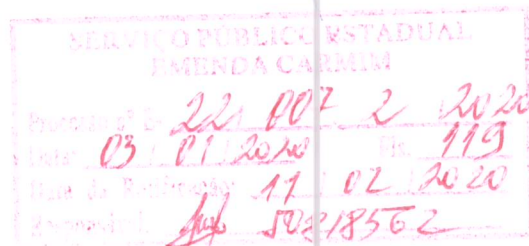 SERVIÇO PÚBLICO ESTADUAL
EMENDA CARMIM
Processo nº E- 22/ 007 2 / 2020
Data: 03 / 01 / 2020 Fls. 119
Data da Retificação: 11 / 02 / 2020
Responsável: 50218562